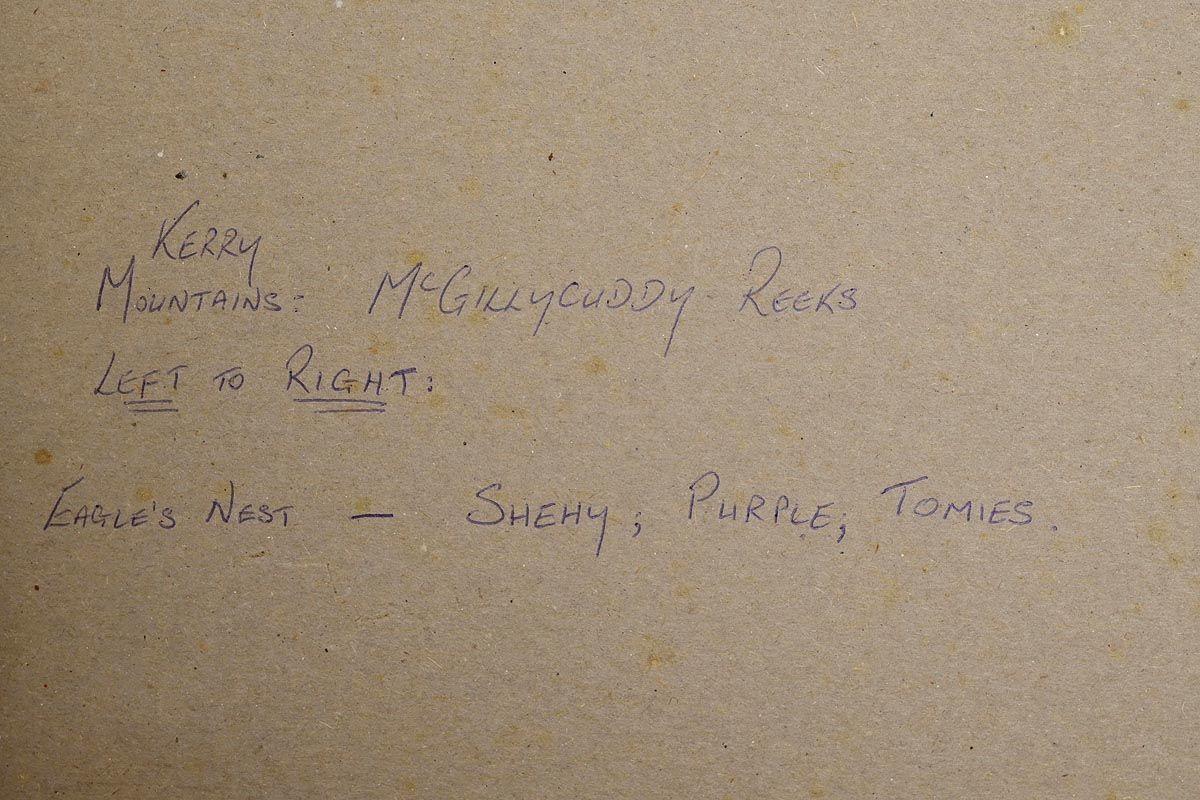 KERRY
MOUNTAINS: McGILLYCUDDY REEKS
LEFT TO RIGHT:
EAGLE'S NEST — SHEHY; PURPLE; TOMIES.